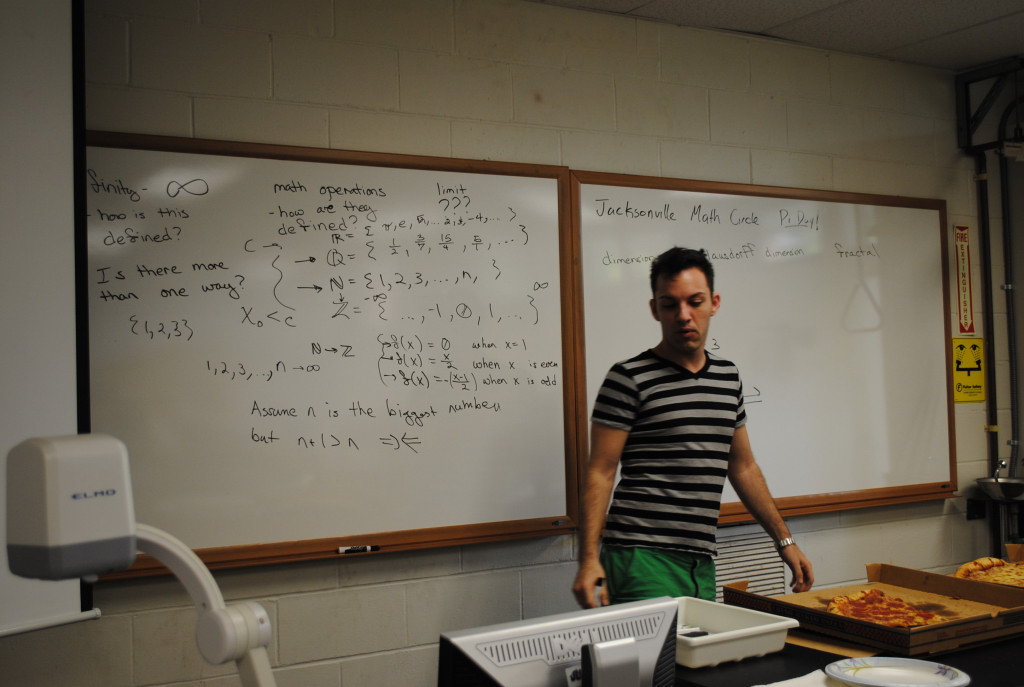 finity - ∞
- how is this
defined?
Is there more
than one way?
{1,2,3}
math operations
- how are they
defined?
limit
???
ℝ = { π, e, √2, ... 2, i, -4, ... }
C →
→ ℚ = { 1/2, 3/7, 15/4, 5/1, ... }
→ ℕ = {1,2,3,...,n, }
∞
-∞
ℤ = { ..., -1, 0, 1, ... }
ℵ₀ < C
ℕ → ℤ
f(x) = 0 when x = 1
→ f(x) = x/2 when x is even
→ f(x) = -(x-1/2) when x is odd
1,2,3,...,n → ∞
Assume n is the biggest number
but n+1 > n ⇒⇐
Jacksonville Math Circle Pi Day!
dimension Hausdorff dimension fractal
3
FIRE EXTINGUISHER
ELMO